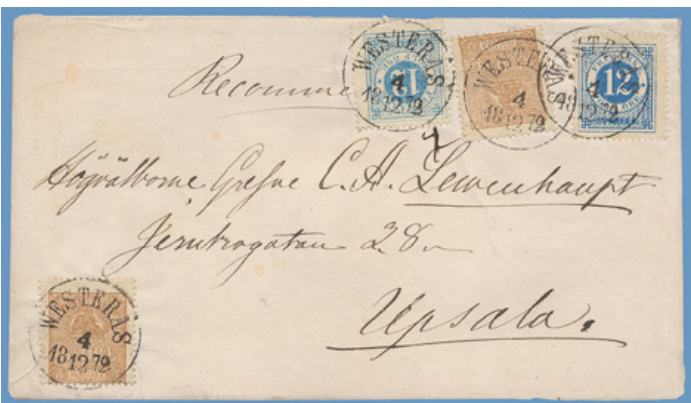 WESTERAS 4 1812 72
WESTERAS 4 1812 72
WESTERAS 4 1812 72
12
12
Recomme
Högvälborne Grefve C. A. Lewenhaupt
Jernbrogatan 28
Upsala.
WESTERAS 4 1812 72